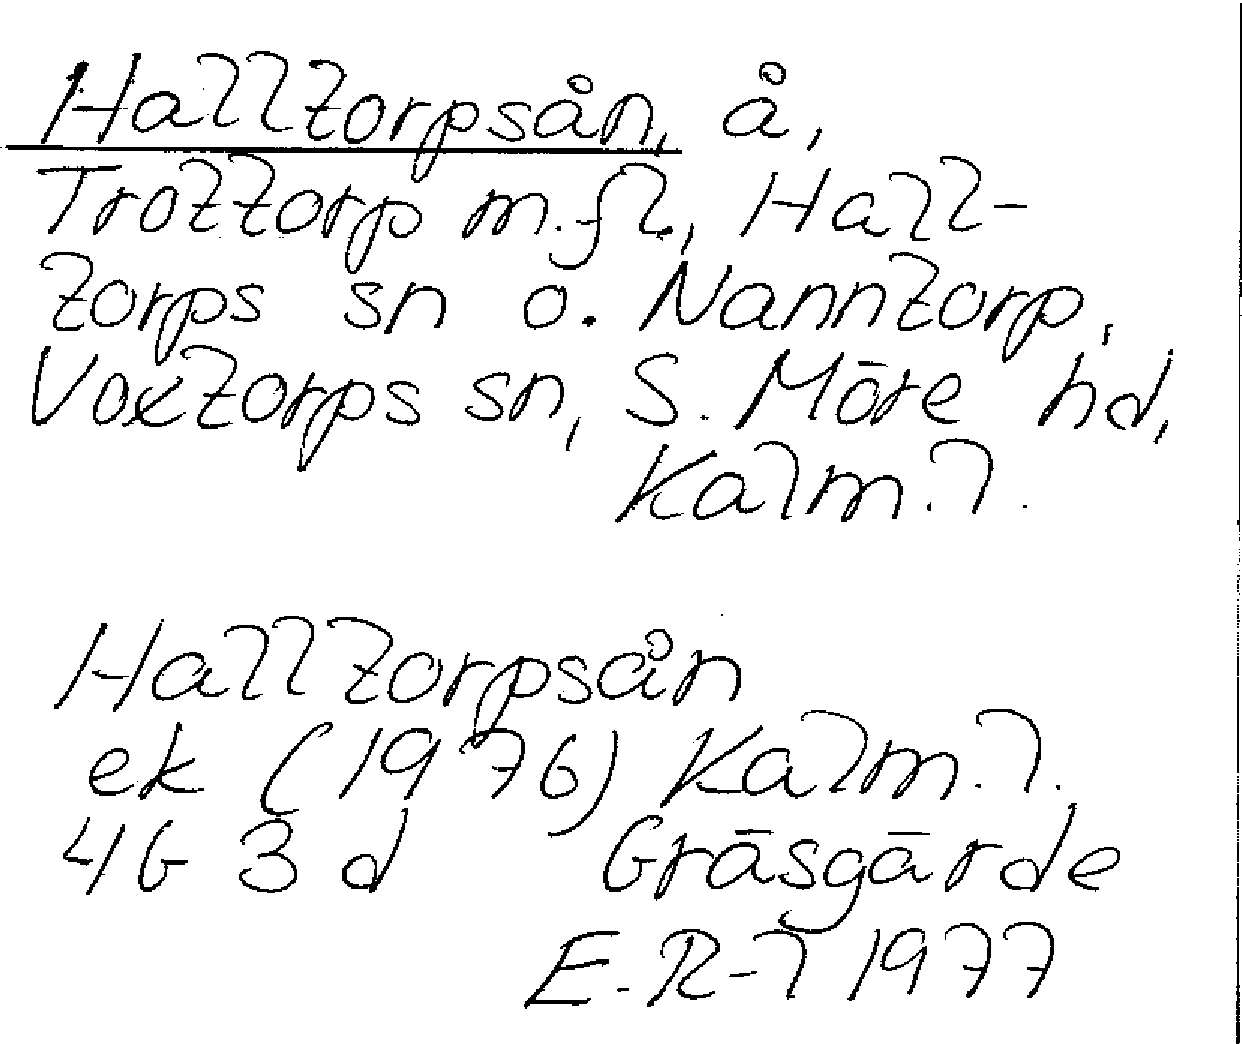 Halltorpsån, å,
Trottorp m.fl., Hall-
torps sn o. Nanntorp,
Voxtorps sn, S. Möre hd,
Kalm. l.
Halltorpsån
ek (1976) Kalm. l.
4G 3d Gräsgärde
E. R-l 1977